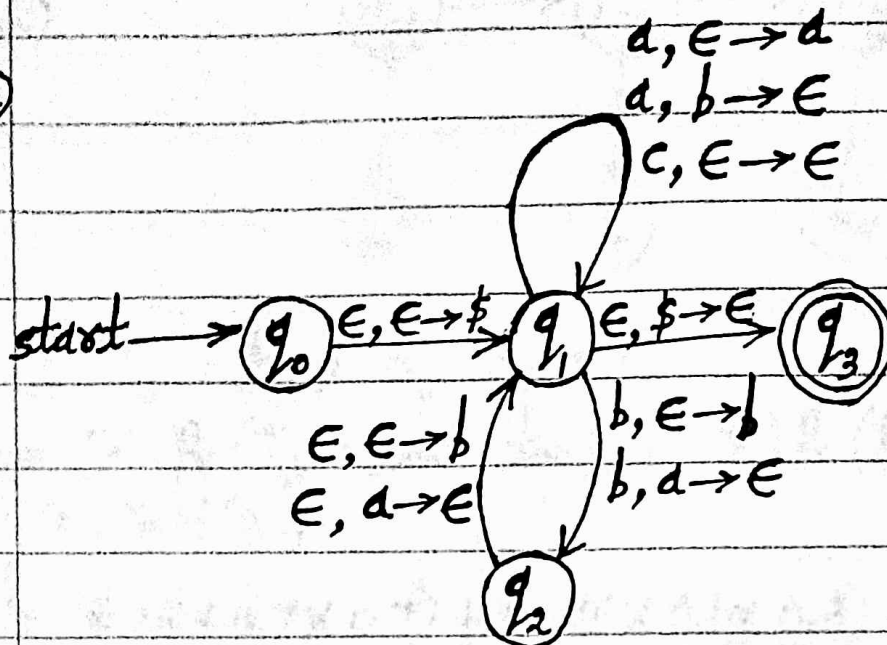 a, ε → a
a, b → ε
c, ε → ε
start
q₀
ε, ε → $
q₁
ε, $ → ε
q₃
ε, ε → b
ε, a → ε
b, ε → b
b, a → ε
q₂